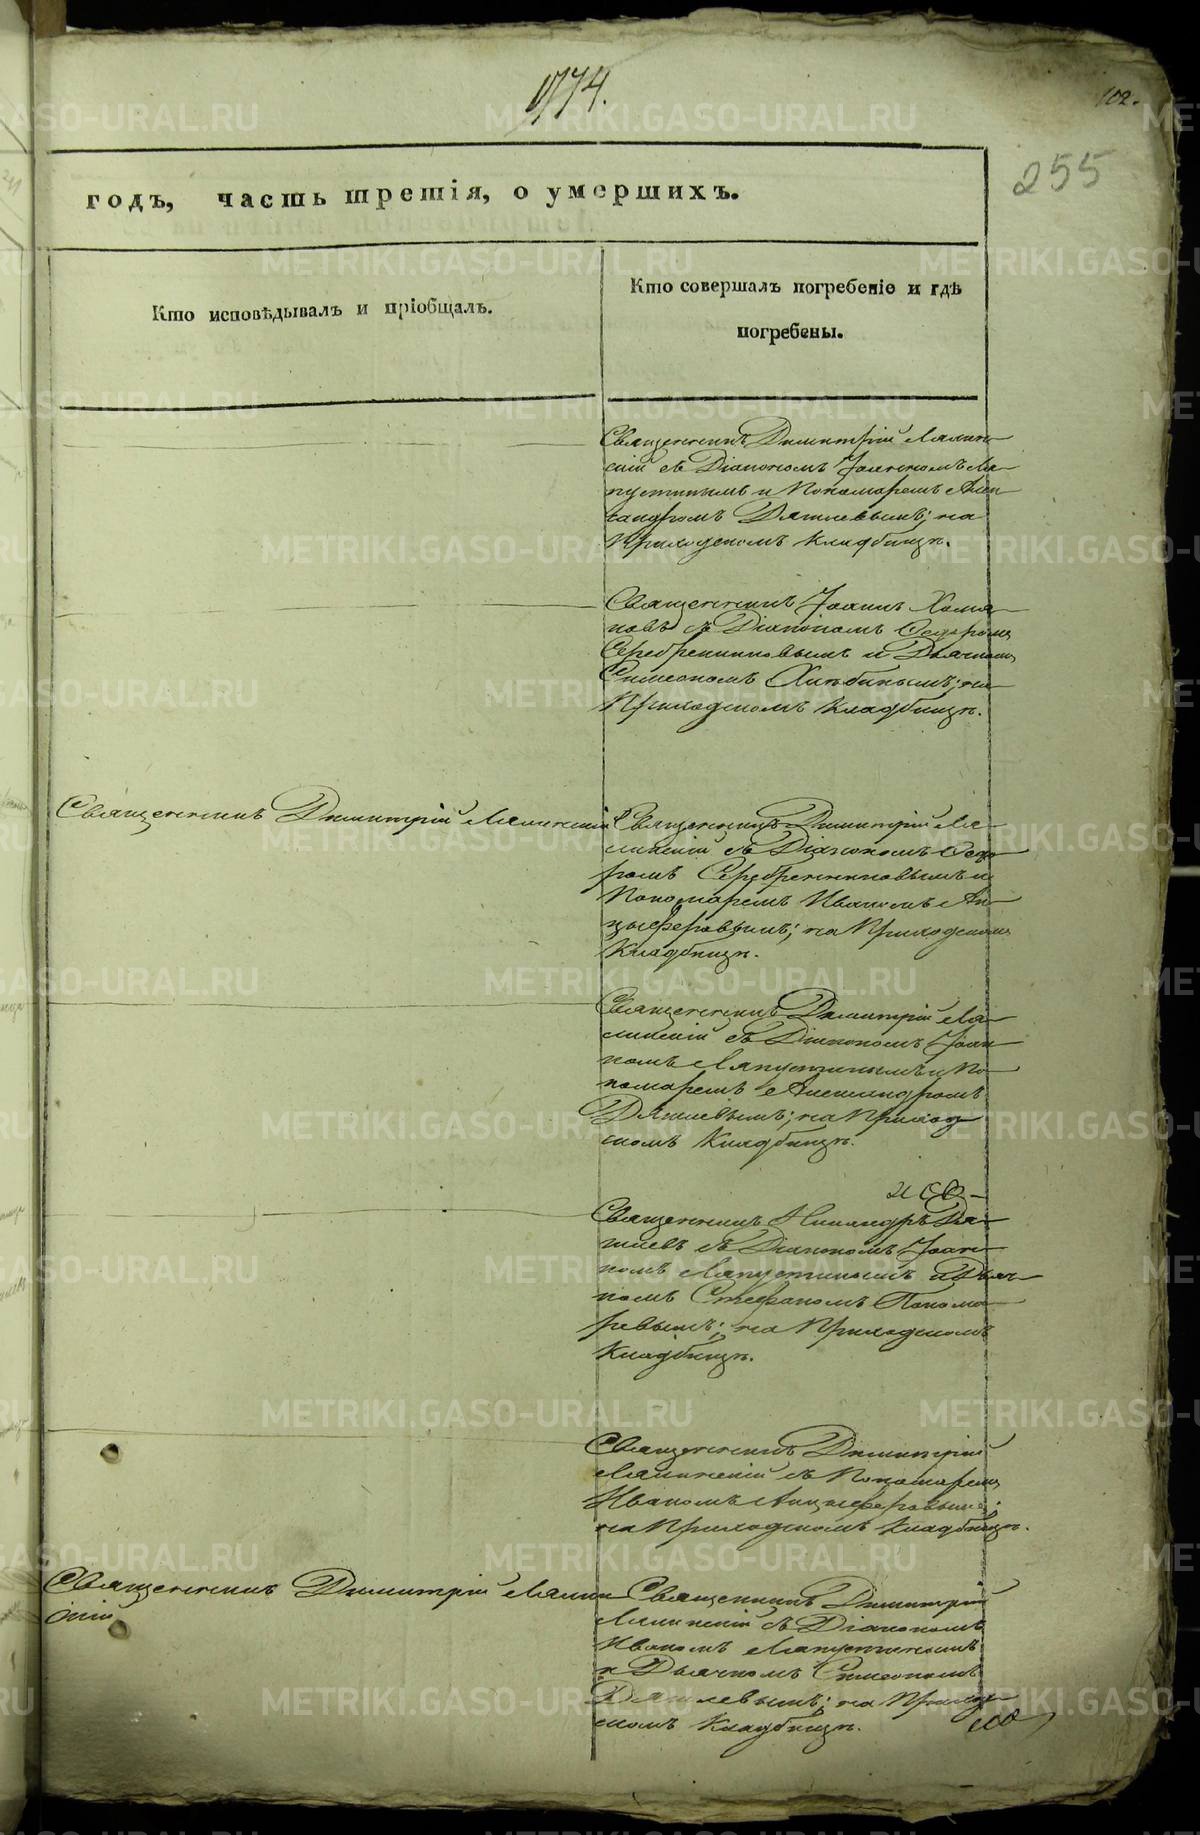 1774.
102.
255
годъ, часть третія, о умершихъ.
Кто исповѣдывалъ и пріобщалъ.
Кто совершалъ погребеніе и гдѣ
погребены.
Священникъ Димитрій Лялин-
скій съ Діакономъ Іоанномъ Ла-
пустинымъ и Пономаремъ Алек
сандромъ Дягилевымъ; на
Приходскомъ Кладбищѣ.
Священникъ Іоаннъ Хомя-
ковъ съ Діакономъ Ѳедоромъ
Серебрениковымъ и Дьячкомъ
Симеономъ на
Приходскомъ Кладбищѣ.
Священникъ Димитрій Лялинскій
Священникъ Димитрій Ля-
линскій съ Діакономъ Ѳедо
ромъ Серебренниковымъ и
Пономаремъ Иваномъ Ан-
цыферовымъ; на Приходскомъ
Кладбищѣ.
Священникъ Димитрій Ля-
линскій съ Діакономъ Іоан-
номъ Лапустинымъ и По-
номаремъ Александромъ
Дягилевымъ; на Приход
скомъ Кладбищѣ.
Священникъ Никандръ Дя-
гилевъ съ Діакономъ Іоан-
номъ Лапустинымъ и Дьяч-
комъ Стефаномъ Понома-
ревымъ; на Приходскомъ
Кладбищѣ.
Священникъ Димитрій
Лялинскій съ Пономаремъ
Иваномъ Анцыферовымъ;
на Приходскомъ Кладбищѣ.
Священникъ Димитрій Лялин
скій
Священникъ Димитрій
Лялинскій съ Діакономъ
Иваномъ Лапустинымъ
и Дьячкомъ Симеономъ
Дягилевымъ; на Приход-
скомъ Кладбищѣ.
METRIKI.GASO-URAL.RU